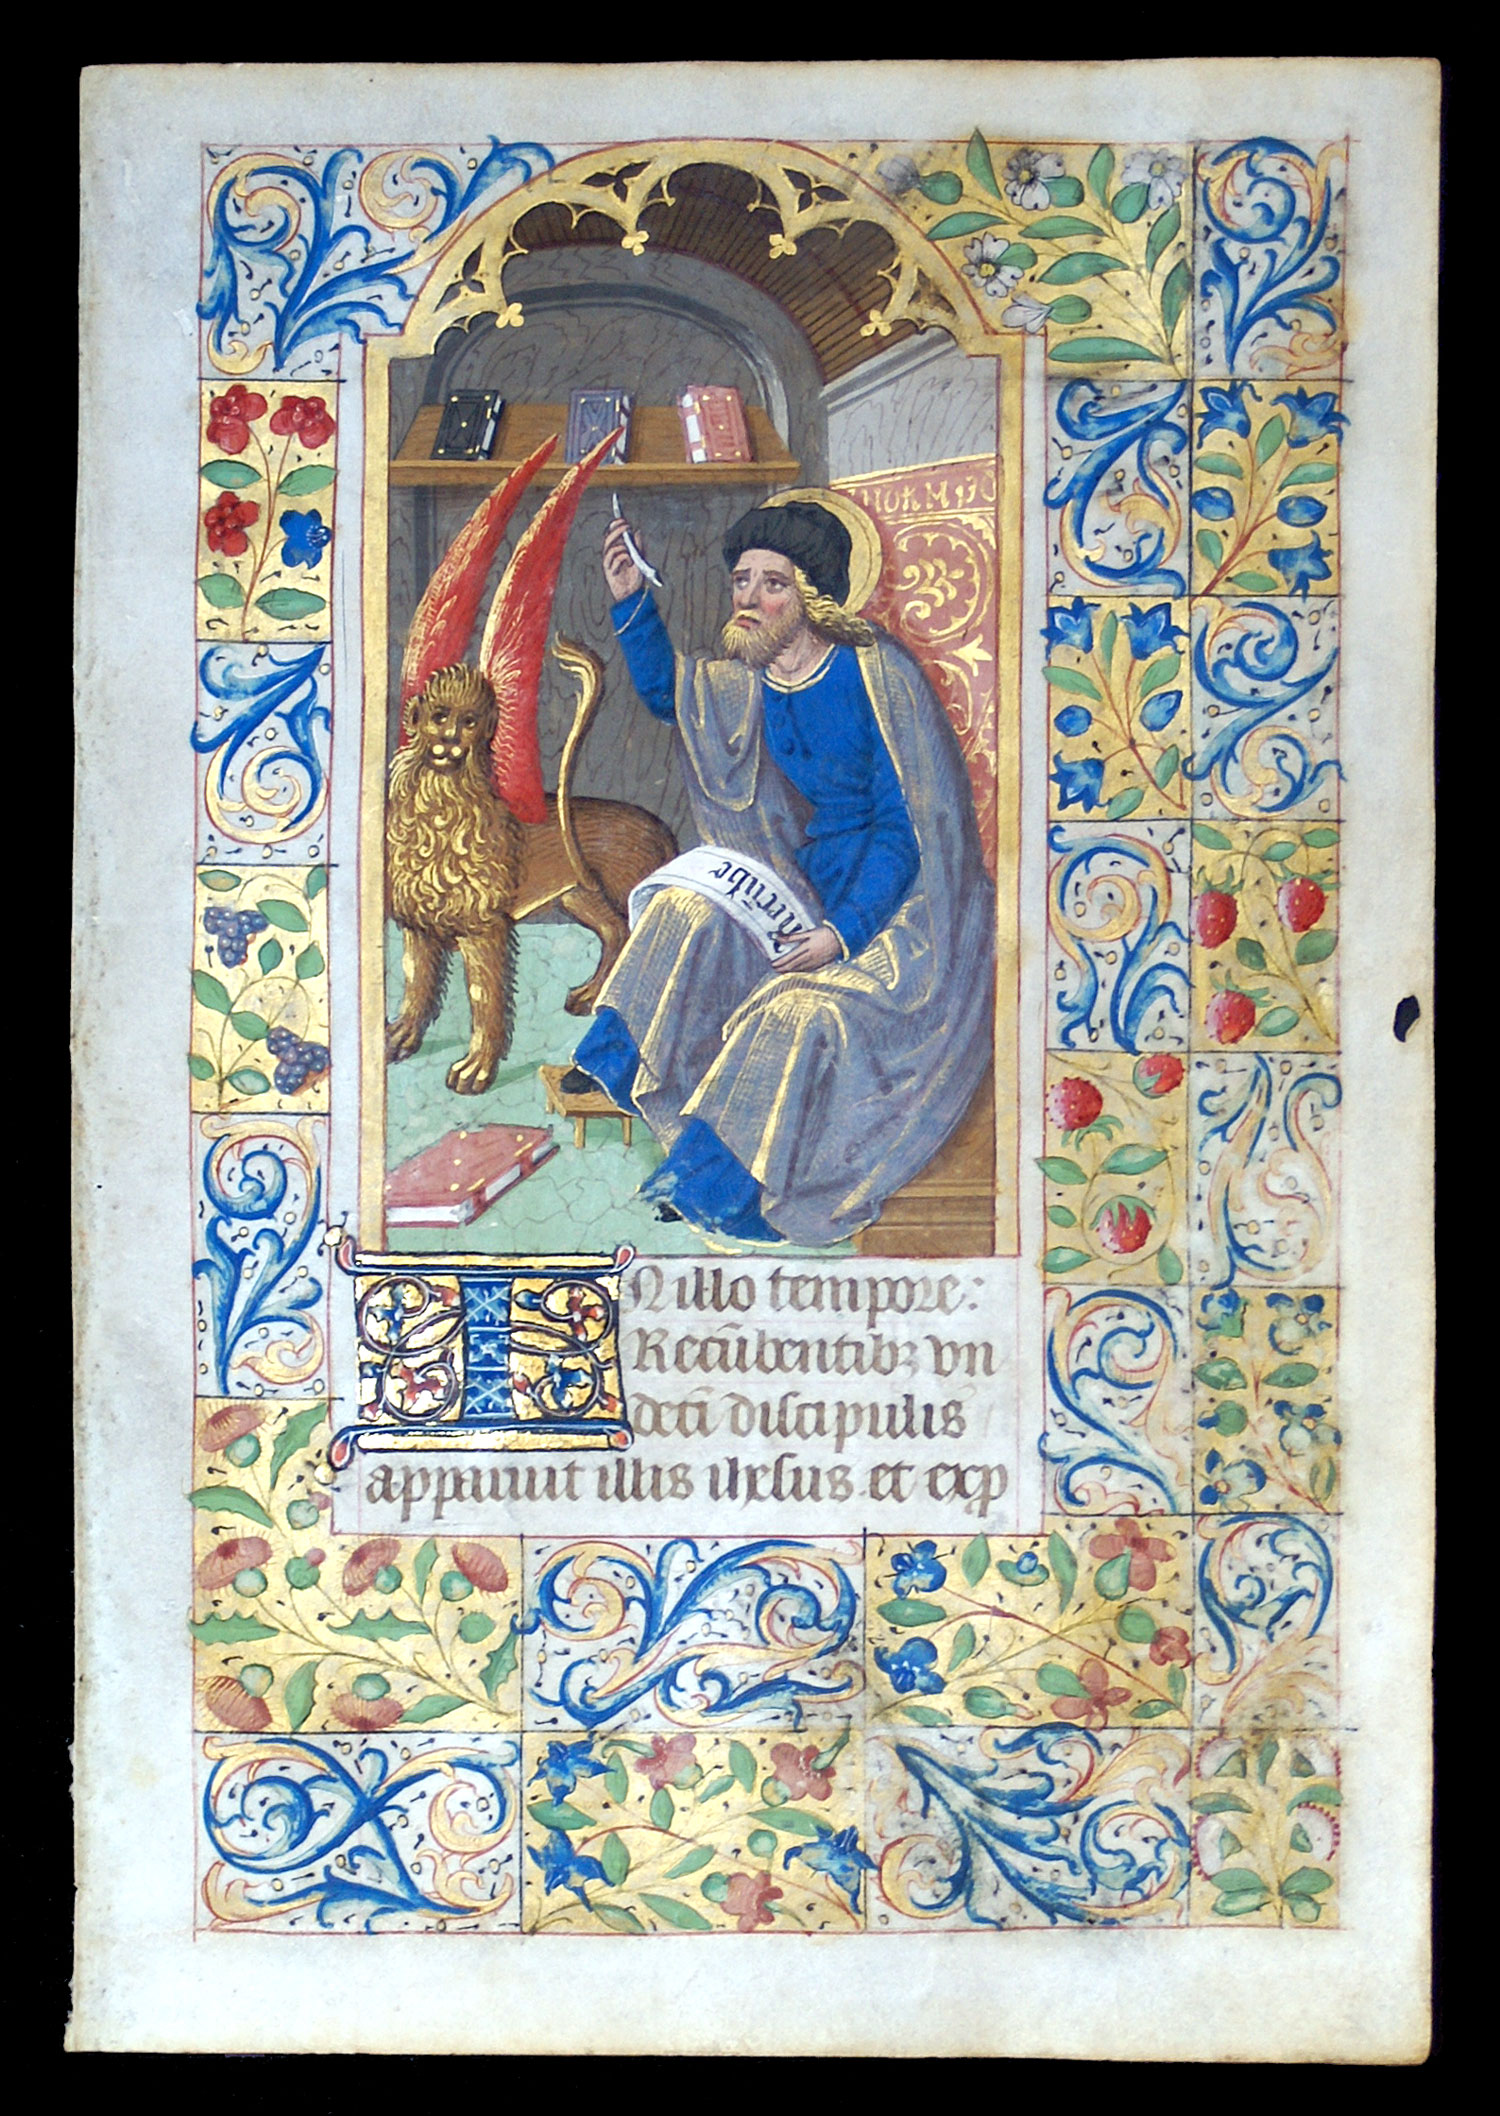 In illo tempore:
Recūbentibꝫ vn
deci discipulis
apparuit illis ihesus et exp